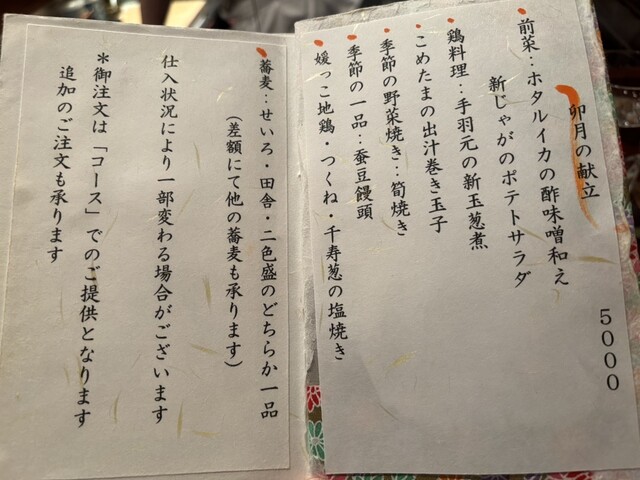 卯月の献立
5000
前菜：ホタルイカの酢味噌和え
新じゃがのポテトサラダ
鶏料理：手羽元の新玉葱煮
こめたまの出汁巻き玉子
季節の野菜焼き：筍焼き
季節の一品：蚕豆饅頭
媛っこ地鶏・つくね・千寿葱の塩焼き
蕎麦：せいろ・田舎・二色盛のどちらか一品
（差額にて他の蕎麦も承ります）
仕入状況により一部変わる場合がございます
＊御注文は「コース」でのご提供となります
追加のご注文も承ります